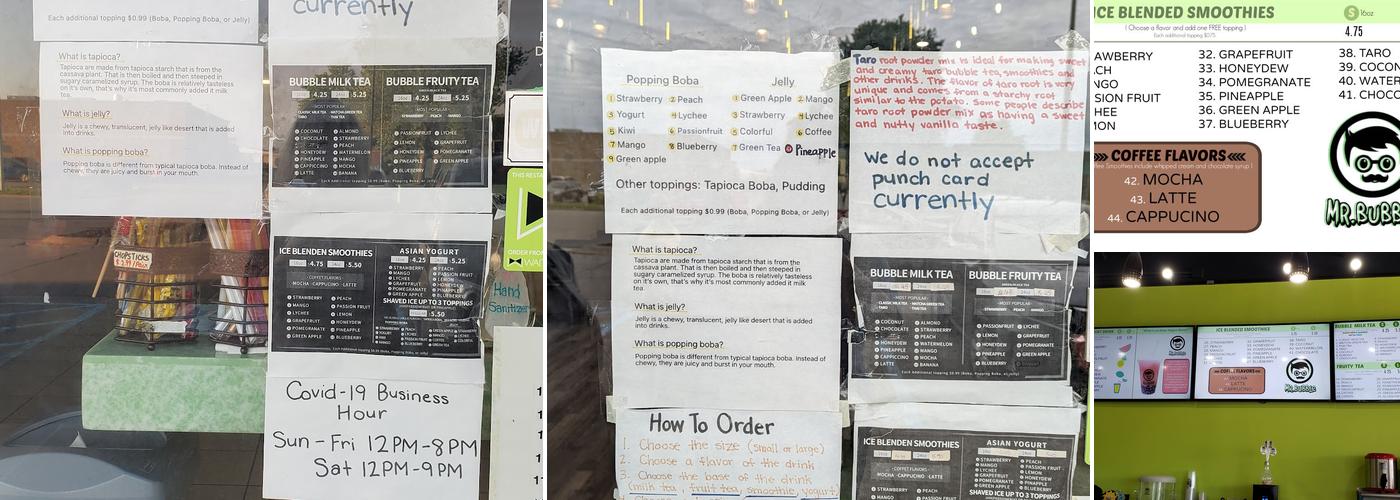 currently
Each additional topping $0.99 (Boba, Popping Boba, or Jelly)
What is tapioca?
Tapioca are made from tapioca starch that is from the
cassava plant. That is then boiled and then steeped in
sugary caramelized syrup. The boba is relatively tasteless
on it's own, that's why it's most commonly added it milk
tea.
What is jelly?
Jelly is a chewy, translucent, jelly like desert that is added
into drinks.
What is popping boba?
Popping boba is different from typical tapioca boba. Instead of
chewy, they are juicy and burst in your mouth.
CHOPSTICKS
BUBBLE MILK TEA
4.25 5.25
MOST POPULAR
COCONUT ALMOND
CHOCOLATE STRAWBERRY
MANGO PEACH
HONEYDEW WATERMELON
PINEAPPLE MANGO
CAPPICCINO MOCHA
LATTE BANANA
BUBBLE FRUITY TEA
4.25 5.25
MOST POPULAR
STRAWBERRY PEACH MANGO
PASSIONFRUIT LYCHEE
LEMON GRAPEFRUIT
HONEYDEW LIME
PINEAPPLE KIWI
GREEN APPLE
ICE BLENDEN SMOOTHIES
4.75 5.50
COFFEE FLAVORS
MOCHA CAPPUCCINO LATTE
STRAWBERRY PEACH
MANGO PASSION FRUIT
LYCHEE LEMON
GRAPEFRUIT HONEYDEW
POMEGRANATE PINEAPPLE
GREEN APPLE BLUEBERRY
ASIAN YOGURT
4.25 5.25
SHAVED ICE UP TO 3 TOPPINGS
5.50
Covid-19 Business
Hour
Sun - Fri 12PM-8PM
Sat 12PM-9PM
THIS RESTA
ORDER FROM
WAIT
Hand
Sanitizer
Popping Boba Jelly
1 Strawberry 2 Peach 1 Green Apple 2 Mango
3 Yogurt 4 Lychee 3 Strawberry 4 Lychee
5 Kiwi 6 Passionfruit 5 Colorful 6 Coffee
7 Mango 8 Blueberry 7 Green Tea 8 Pineapple
9 Green apple
Other toppings: Tapioca Boba, Pudding
Each additional topping $0.99 (Boba, Popping Boba, or Jelly)
What is tapioca?
Tapioca are made from tapioca starch that is from the
cassava plant. That is then boiled and then steeped in
sugary caramelized syrup. The boba is relatively tasteless
on it's own, that's why it's most commonly added it milk
tea.
What is jelly?
Jelly is a chewy, translucent, jelly like desert that is added
into drinks.
What is popping boba?
Popping boba is different from typical tapioca boba. Instead of
chewy, they are juicy and burst in your mouth.
How To Order
1. Choose the size (small or large)
2. Choose a flavor of the drink
3. Choose the base of the drink
(milk tea, fruit tea, smoothie, yogurt)
Taro root powder mix is ideal for making sweet
and creamy taro bubble tea, smoothies and
other drinks. The flavor of taro root is very
unique and comes from a starchy root
similar to the potato. Some people describe
taro root powder mix as having a sweet
and nutty vanilla taste.
we do not accept
punch card
currently
BUBBLE MILK TEA
MOST POPULAR
COCONUT ALMOND
CHOCOLATE STRAWBERRY
BUBBLE FRUITY TEA
MOST POPULAR
PASSIONFRUIT LYCHEE
LEMON GRAPEFRUIT
ICE BLENDED SMOOTHIES
COFFEE FLAVORS
MOCHA CAPPUCCINO LATTE
STRAWBERRY PEACH
MANGO PASSION FRUIT
LYCHEE LEMON
ASIAN YOGURT
SHAVED ICE UP TO 3 TOPPINGS
ICE BLENDED SMOOTHIES
S 16oz
( Choose a flavor and add one FREE topping )
Each additional topping $0.75
4.75
AWBERRY 32. GRAPEFRUIT 38. TARO
CH 33. HONEYDEW 39. COCON
NGO 34. POMEGRANATE 40. WATER
SION FRUIT 35. PINEAPPLE 41. CHOC
HEE 36. GREEN APPLE
MON 37. BLUEBERRY
COFFEE FLAVORS
42. MOCHA
43. LATTE
44. CAPPUCINO
MR.BUBB
ICE BLENDED SMOOTHIES
COFFEE FLAVORS
MOCHA
LATTE
CAPPUCINO
MR.BUBBLE
BUBBLE MILK TEA
FRUITY TEA